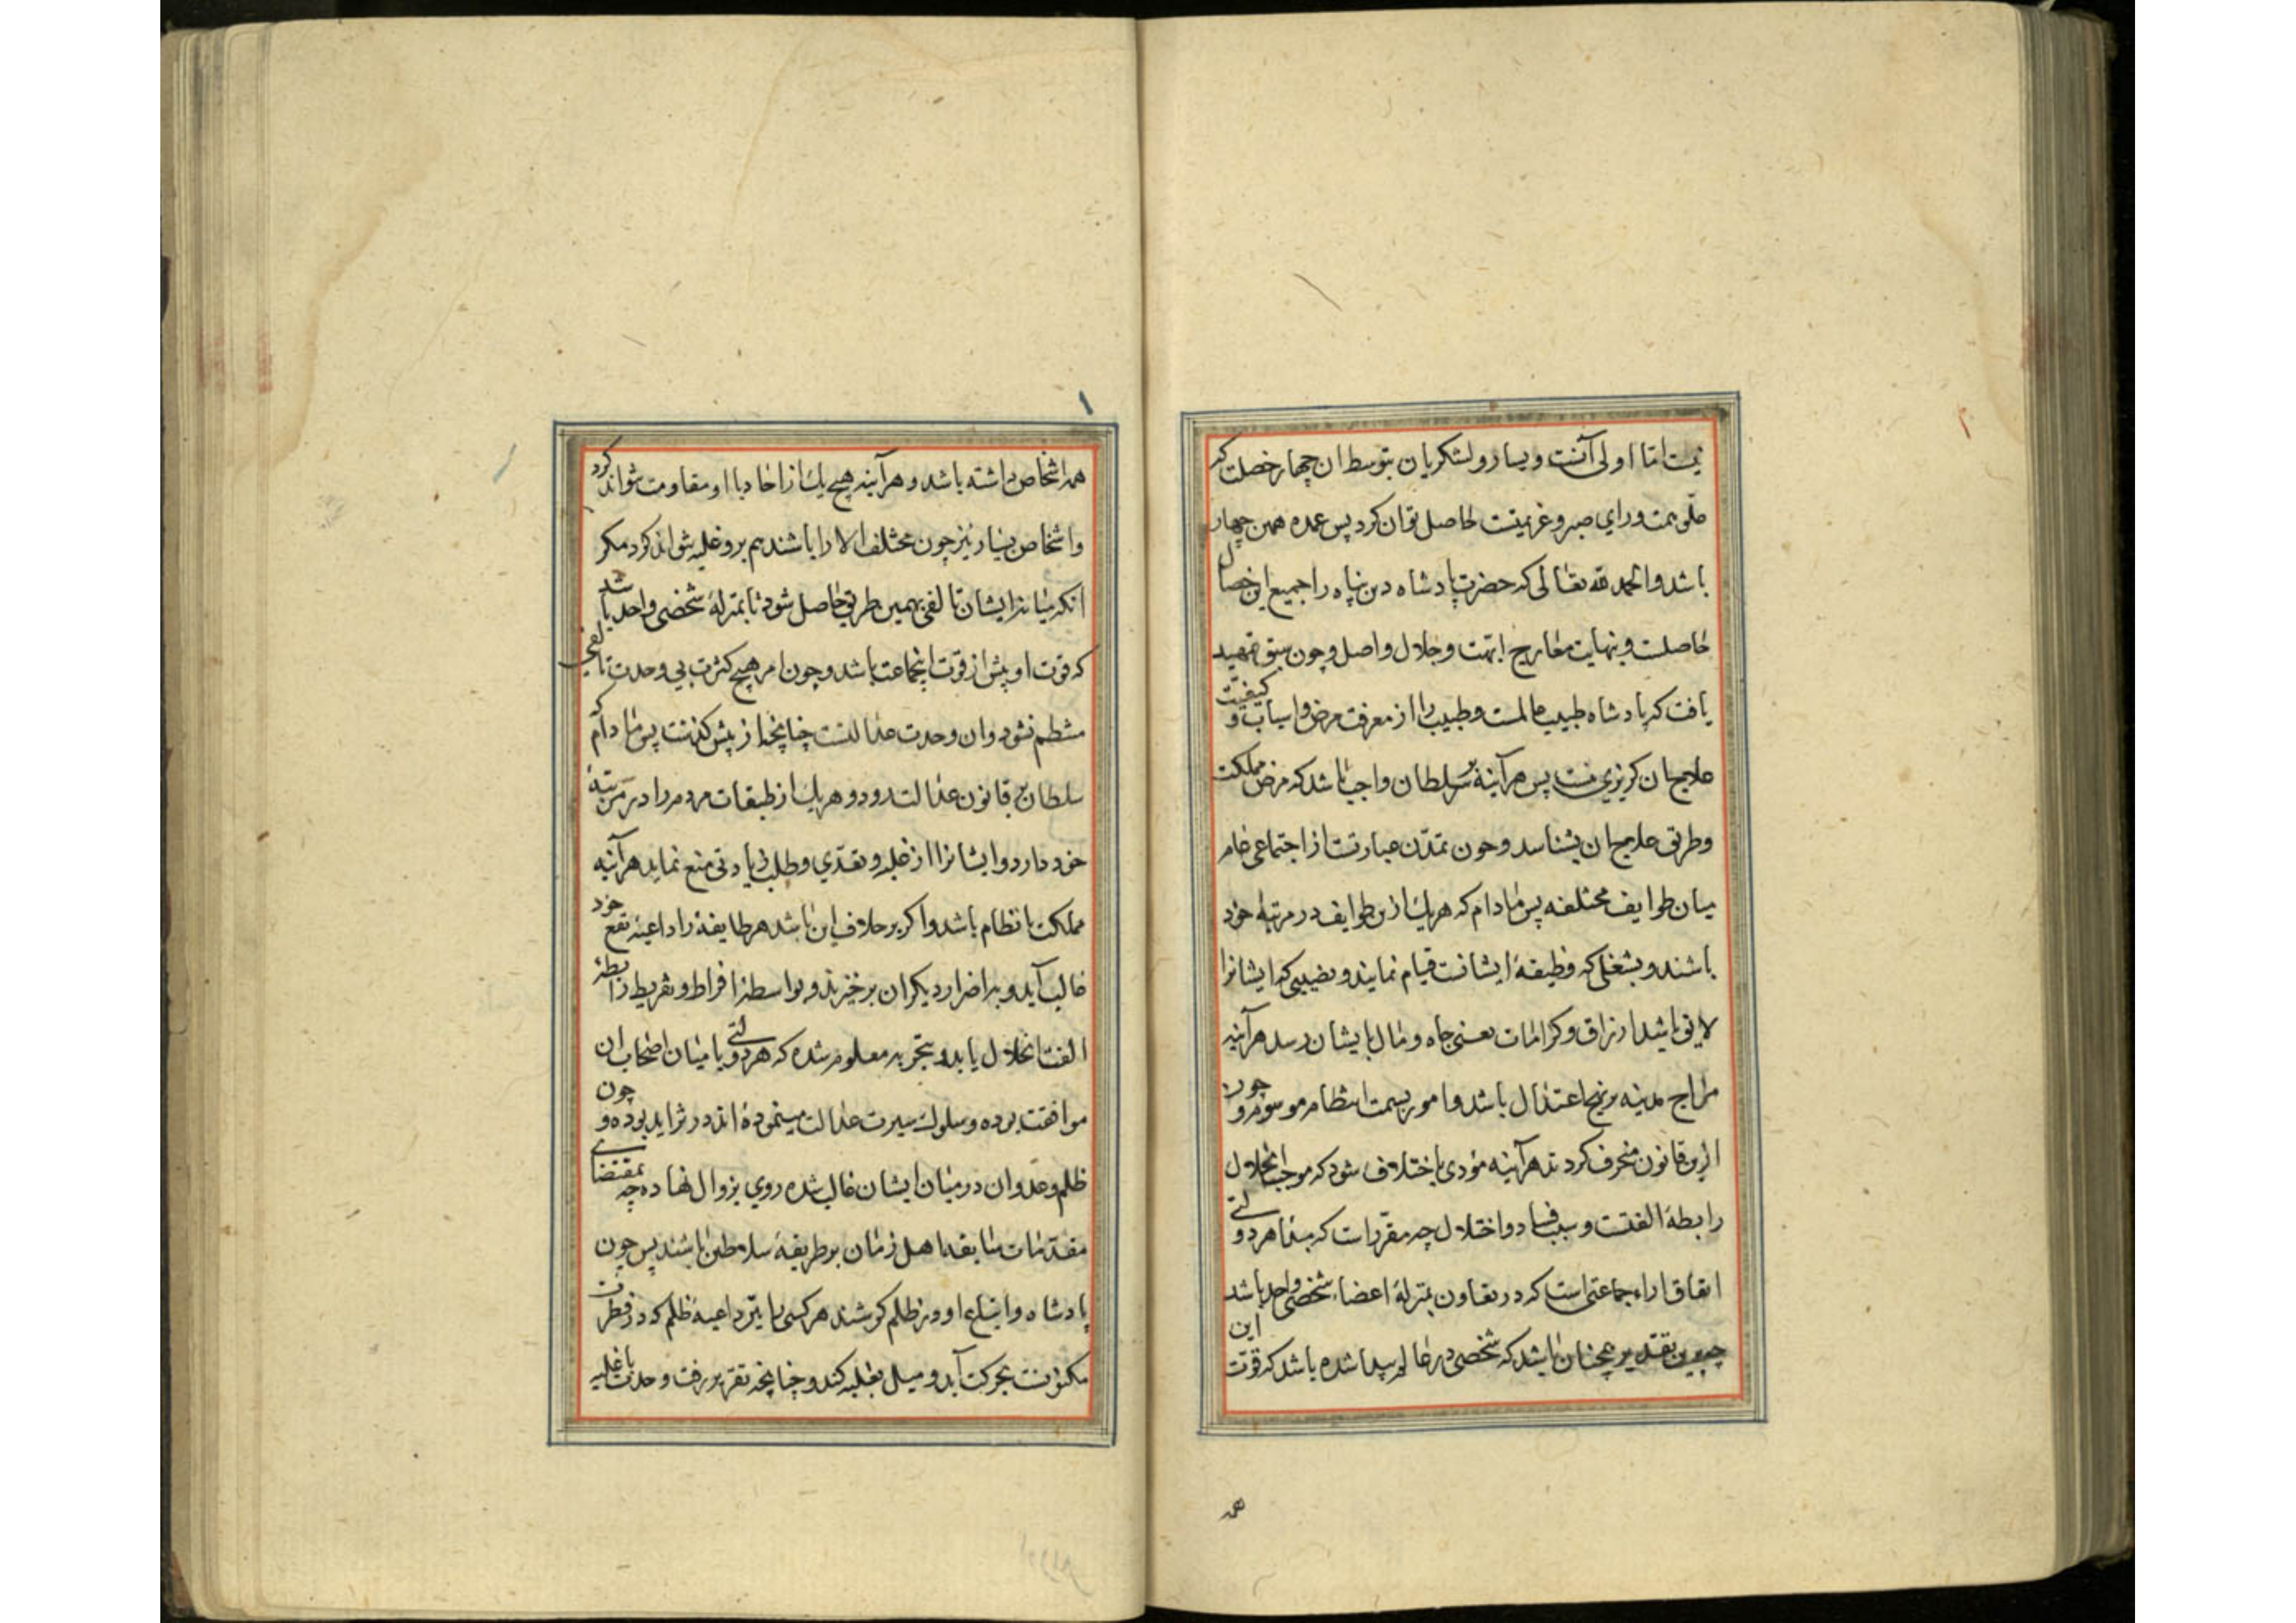 نیست اما اولی آنست و یسار و لشکریان بتوسط ان چهار خصلت که
علو همت و رای و صبر و عزیمتست حاصل توان کرد پس عمده همین چهار
باشد و الحمد لله تعالی که حضرت پادشاه دین پناه را جمیع این خصال
حاصلست و بنهایت معارج ابهت و جلال واصل و چون سبق تمهید
یافت که پادشاه طبیب عالمست و طبیب را از معرفت مرض و اسباب و کیفیت
علاج ان کریزی نیست پس هرآینه بر سلطان واجب باشد که مرض مملکت
و طریق علاج ان بشناسد و چون تمدن عبارتست از اجتماعی عام
میان طوایف مختلفه پس مادام که هریک ازین طوایف در مرتبه خود
باشند و بشغلی که وظیفهٔ ایشانست قیام نمایند و نصیبی که ایشانرا
لایق باشد از ارزاق و کرامات یعنی جاه و مال بایشان رسد هرآینه
مزاج مدینه بر نهج اعتدال باشد و امور بسمت انتظام موسوم و چون
ازین قانون منحرف کردند هرآینه مؤدی باختلاف شود که موجب انحلال
رابطهٔ الفتست و سبب فساد و اختلال چه مقرر است که مبدا هر دولتی
اتفاق اراء جماعتی است که در تعاون بمنزلهٔ اعضاء شخصی واحد باشد
چه برین تقدیر همچنان باشد که شخصی در عالم پیدا شده باشد که قوت این
همه
همه اشخاص داشته باشد و هرآینه هیچ یک از احاد با او مقاومت نتواند کرد
و اشخاص بسیار نیز چون مختلف الارا باشند هم برو غلبه نتواند کرد مکر
انکه میانه ایشان تالفی بهمین طریق حاصل شود تا بمنزلهٔ شخصی واحد باشد
که قوت او بیش از قوت انجماعت باشد و چون امر هیچ کثرت بی وحدت تالفی
منتظم نشود و ان وحدت عدالتست چنانچه از پیش کذشت پس مادام که
سلطان بر قانون عدالت رود و هریک از طبقات مردم را در مرتبهٔ
خود دارد و ایشانرا از غلبه و تعدی و طلب زیادتی منع نماید هرآینه
مملکت با نظام باشد و اکر بر خلاف این باشد هر طایفه را داعیهٔ نفع خود
غالب آید و بر اضرار دیکران برخیزند و بواسطهٔ افراط و تفریط رابطهٔ
الفت انحلال یابد و بتجربه معلوم شده که هر دولتی با میان اصحاب ان
موافقت بوده و سلوک سیرت عدالت مینموده اند در تزاید بوده و چون
ظلم و عدوان در میان ایشان غالب شده روی بزوال نهاده چه بمقتضای
مقدمات سابقه اهل زمان بر طریقهٔ سلاطین باشند پس چون
پادشاه و اتباع او در ظلم کوشند هر کسی را نیز داعیهٔ ظلم که در فطرت
مکنونست بحرکت آید و میل بغلبه کند و چنانچه تقریر رفت وحدت با غلبه